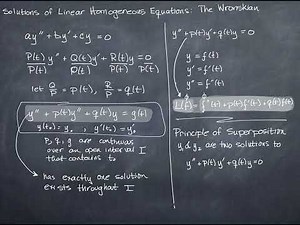 Solutions of Linear Homogeneous Equations: The Wronskian
ay" + by' + cy = 0
P(t)/P(t) y" + Q(t)/P(t) y' + R(t)/P(t) y = 0/P(t)
let Q/P = p(t), R/P = q(t)
y" + p(t)y' + q(t)y = g(t)
y(t₀) = y₀, y'(t₀) = y₀'
p, q, g are continuous
over an open interval I
that contains t₀
has exactly one solution
exists throughout I
y" + p(t)y' + q(t)y = 0
y = f(t)
y' = f'(t)
y" = f"(t)
= f"(t) + p(t)f'(t) + q(t)f(t)
Principle of Superposition
y₁ & y₂ are two solutions to
y" + p(t)y' + q(t)y = 0